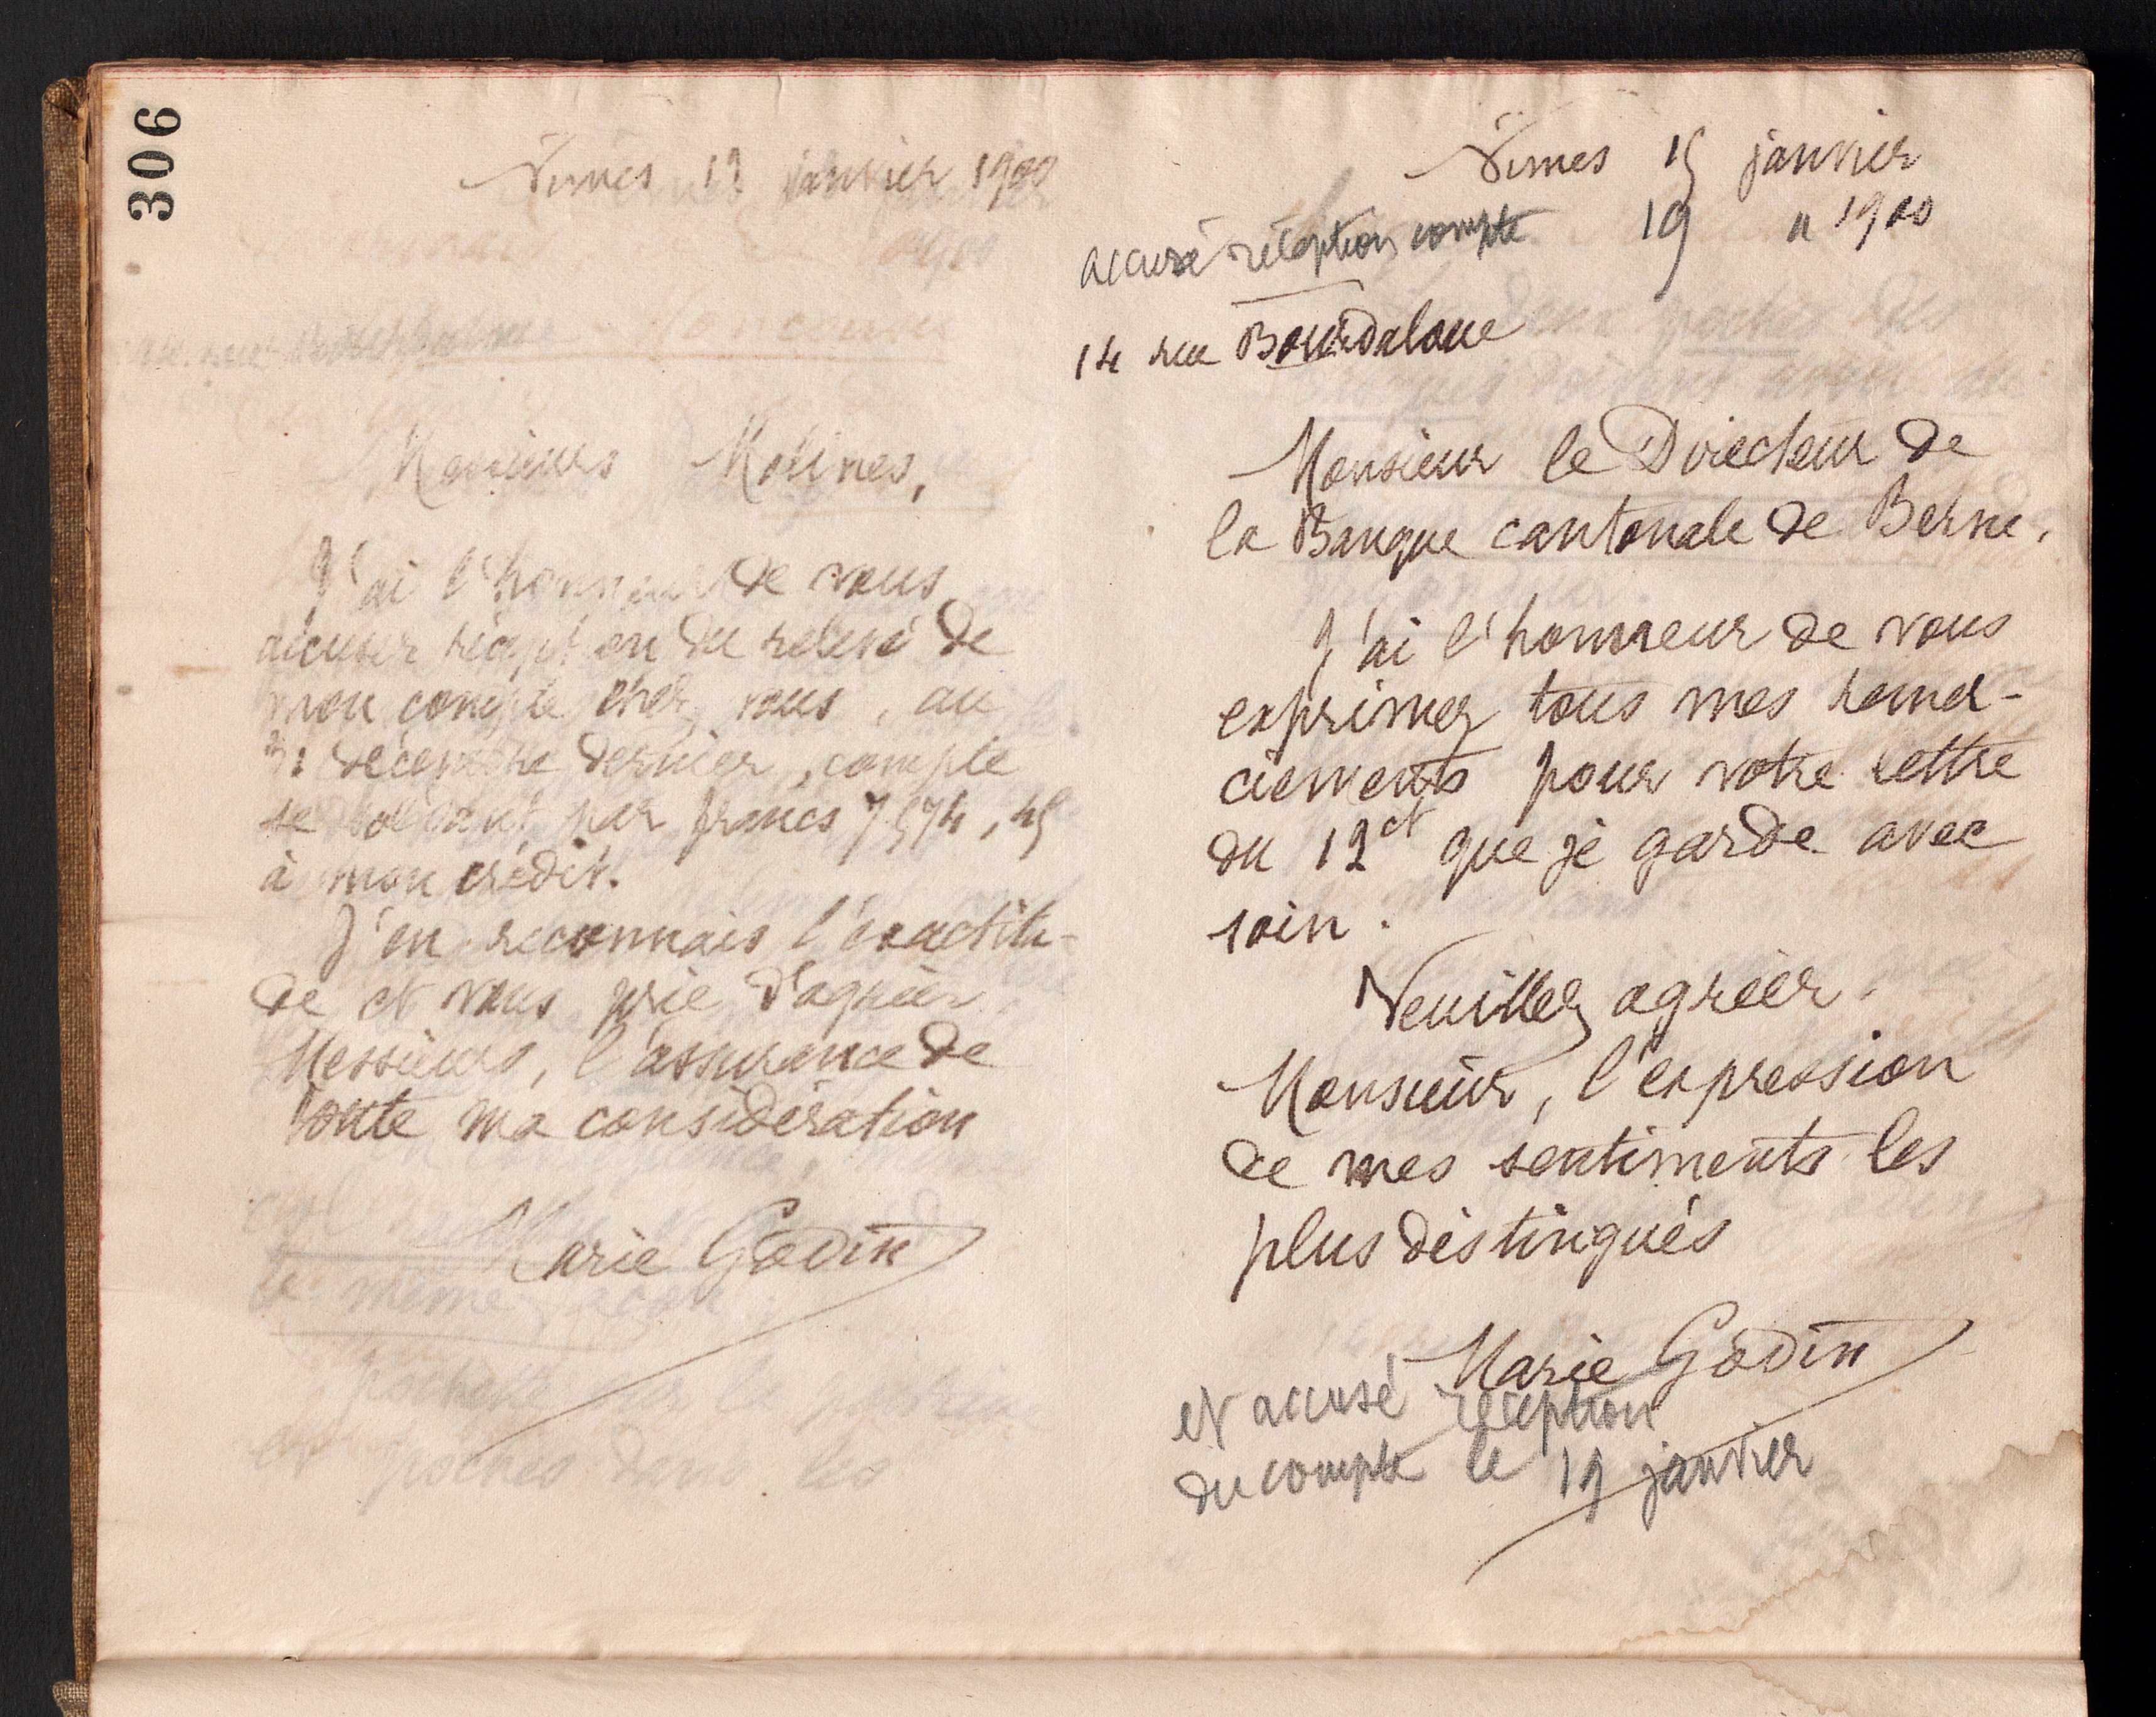 306
Nîmes 13 janvier 1900
Messieurs Molines,
J'ai l'honneur de vous
accuser réception du relevé de
mon compte chez vous, au
31 décembre dernier, compte
se soldant par francs 7574,45
à mon crédit.
J'en reconnais l'exactitu-
de et vous prie d'agréer
Messieurs, l'assurance de
toute ma considération
Marie Godin
Nîmes 15 janvier
19 " 1900
accusé réception compte
14 rue Bourdaloue
Monsieur le Directeur de
la Banque cantonale de Berne,
J'ai l'honneur de vous
exprimer tous mes remer-
ciements pour votre lettre
du 12 ct que je garde avec
soin.
Veuillez agréer.
Monsieur, l'expression
de mes sentiments les
plus distingués
Marie Godin
et accusé réception
du compte le 19 janvier